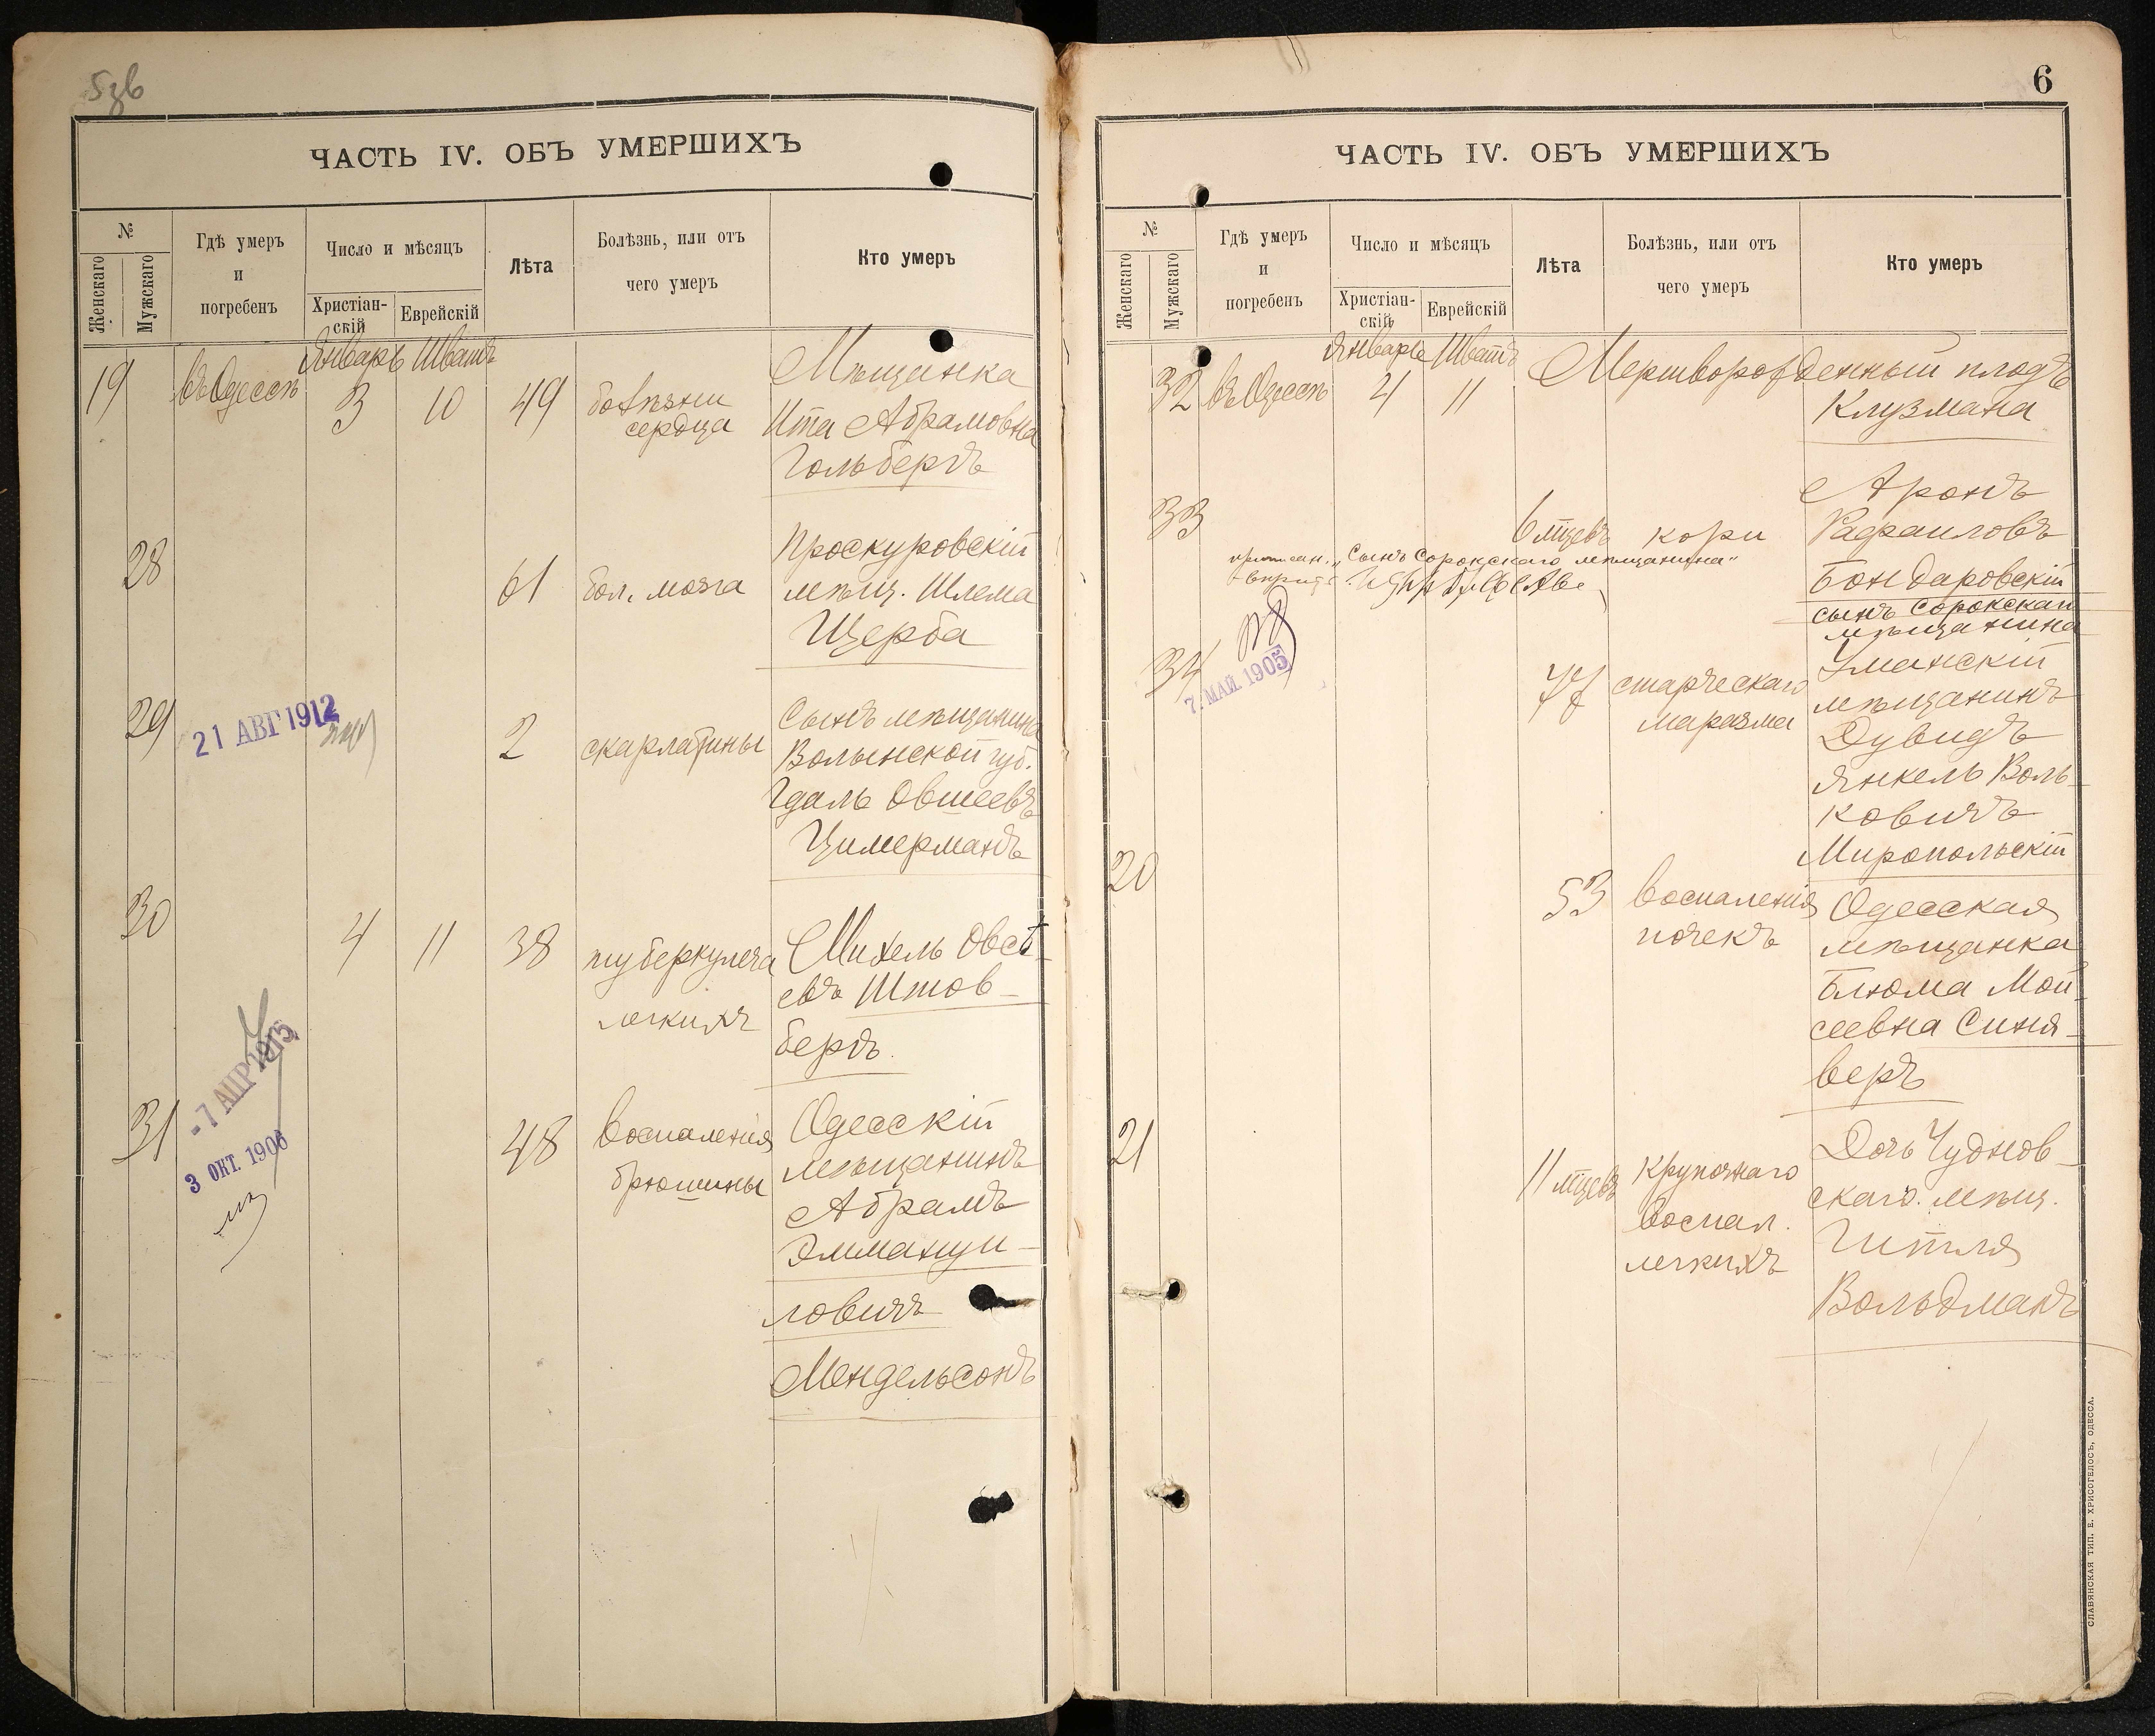 5зв
ЧАСТЬ IV. ОБЪ УМЕРШИХЪ
№
Женскаго
Мужскаго
Гдѣ умеръ
и
погребенъ
Число и мѣсяцъ
Христіан-
скій
Еврейскій
Лѣта
Болѣзнь, или отъ
чего умеръ
Кто умеръ
Январь Шватъ
19 въ Одессѣ 3 10 49 болѣзни
сердца
Мѣщанка
Ита Абрамовна
Гольбергъ
28 61 бол. мозга
Проскуровскій
мѣщ. Шлема
Щерба
29 21 АВГ 1912 2 скарлатины
Сынъ мѣщанина
Волынской губ.
Гдаль Овшеевъ
Цимерманъ
30 4 11 38 туберкулеза
легкихъ
Михель Овсѣ-
евъ Штов-
бергъ.
- 7 АПР 1915
3 ОКТ. 1906
31 48 воспаленія
брюшины
Одесскій
мѣщанинъ
Абрамъ
Эммануи-
ловичъ
Мендельсонъ
6
ЧАСТЬ IV. ОБЪ УМЕРШИХЪ
№
Женскаго
Мужскаго
Гдѣ умеръ
и
погребенъ
Число и мѣсяцъ
Христіан-
скій
Еврейскій
Лѣта
Болѣзнь, или отъ
чего умеръ
Кто умеръ
Январь Шватъ
32 въ Одессѣ 4 11 Мертворожденный плодъ
Клузмана
33 6 мцевъ кори
Аронъ
Рафаиловъ
Бондаровскій
сынъ Сорокскаго
мѣщанина
"Сынъ Сорокскаго мѣщанина"
7. МАЙ 1905
34 77 старческаго
маразма
Уманскій
мѣщанинъ
Дувидъ
Янкель Воль-
ковичъ
Миропольскій
20 53 воспаленія
почекъ
Одесская
мѣщанка
Блюма Мои-
сеевна Синя-
веръ
21 11 мцевъ крупознаго
воспал.
легкихъ
Дочь Чуднов-
скаго мѣщ.
Гитля
Вольдманъ
СЛАВЯНСКАЯ ТИП. Е. ХРИСОГЕЛОСЪ, ОДЕССА.